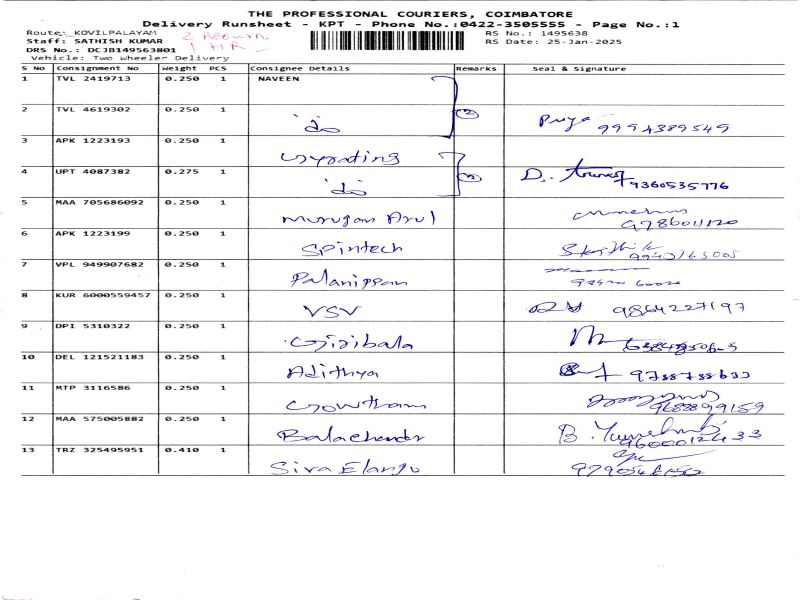 THE PROFESSIONAL COURIERS, COIMBATORE
Delivery Runsheet - KPT - Phone No.:0422-3505555 - Page No.:1
Route: KOVILPALAYAM 2 Return RS No.: 1495638
Staff: SATHISH KUMAR 1 HR RS Date: 25-Jan-2025
DRS No.: DCJB149563801
Vehicle: Two Wheeler Delivery
S No Consignment No Weight PCS Consignee Details Remarks Seal & Signature
1 TVL 2419713 0.250 1 NAVEEN
2 TVL 4619302 0.250 1 do 2 Priya 9994389549
3 APK 1223193 0.250 1 Gyrating
4 UPT 4087382 0.275 1 do 2 D. 9360535776
5 MAA 705686092 0.250 1 Murugan Arul 9786011120
6 APK 1223199 0.250 1 Spintech
7 VPL 949907682 0.250 1 Palanippan
8 KUR 6000559457 0.250 1 VSV 9864227197
9 DPI 5310322 0.250 1 Giribala
10 DEL 121521183 0.250 1 Adithya 9788788633
11 MTP 3116586 0.250 1 Gowtham 9688899159
12 MAA 575005882 0.250 1 Balachander B. 9600012433
13 TRZ 325495951 0.410 1 Siva Elango